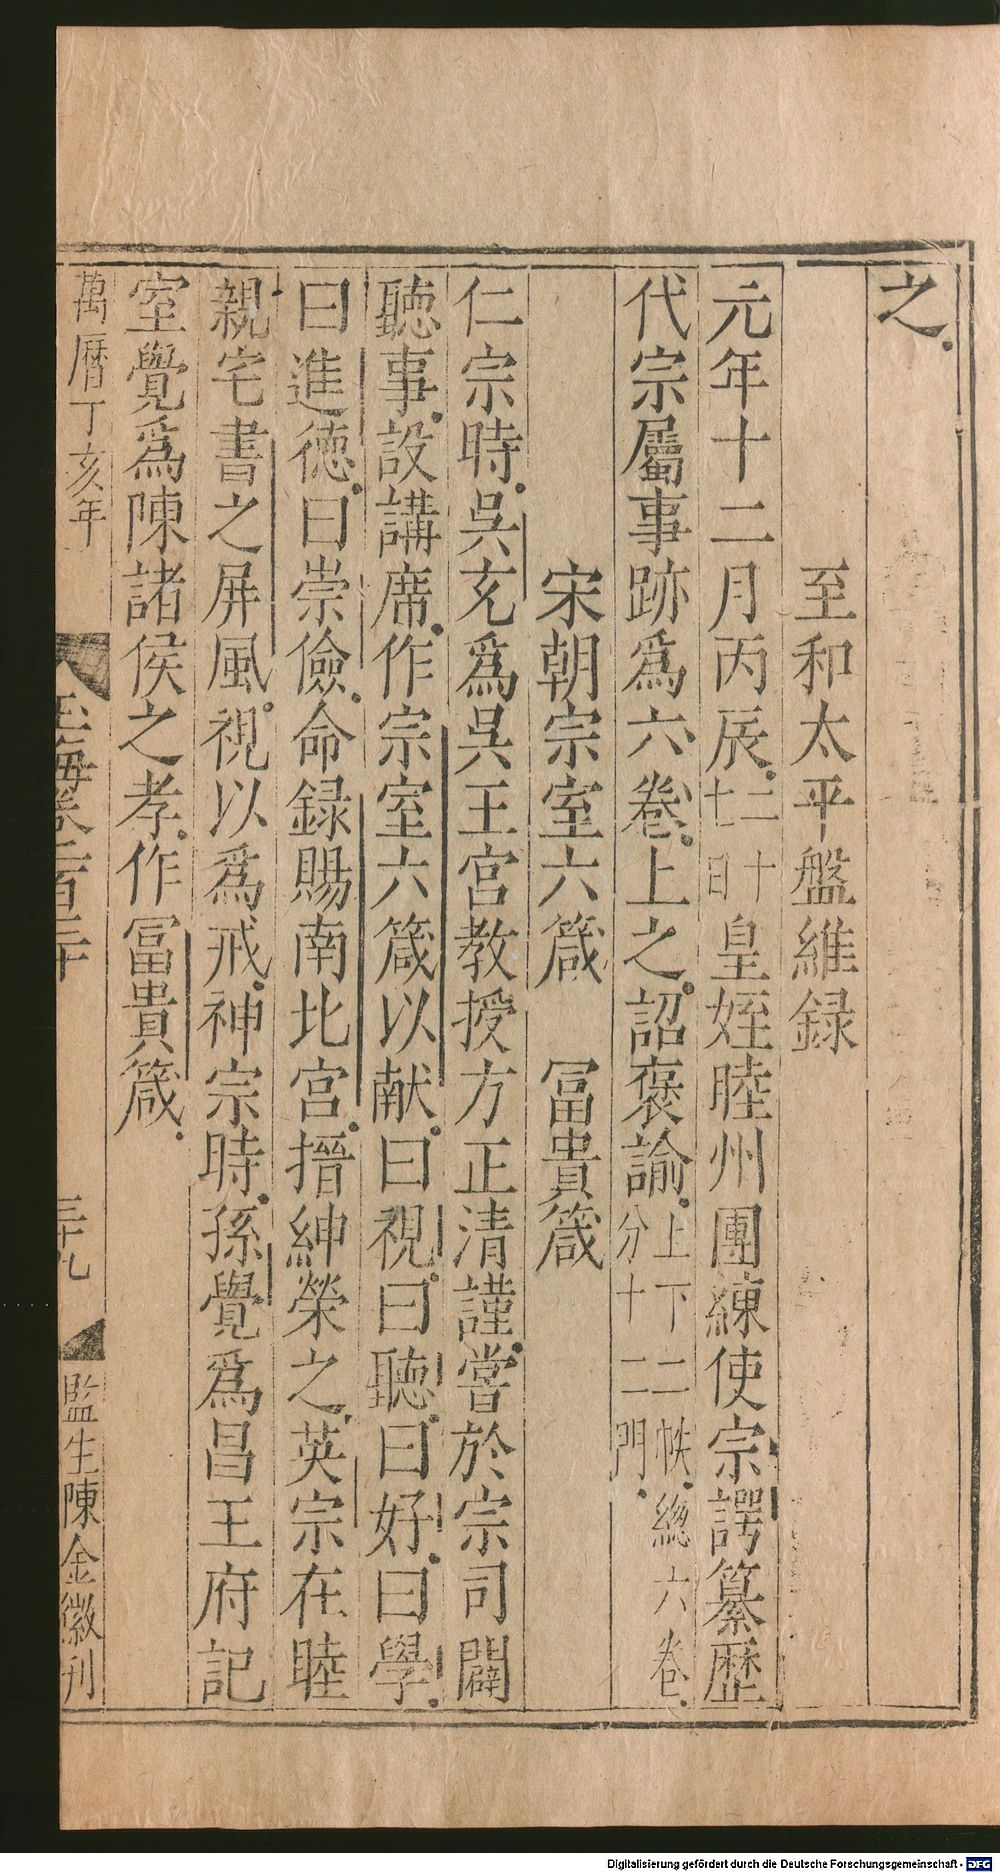 之
至和太平盤維録
元年十二月丙辰二十十一日皇姪睦州團練使宗諤纂歷
代宗屬事跡為六卷上之詔褒諭上下二帙總六卷分十二門
宋朝宗室六箴　冨貴箴
仁宗時吳充為吳王宮教授方正清謹嘗於宗司闢
聽事設講席作宗室六箴以献曰視曰聽曰好曰學
曰進徳曰崇儉命録賜南北宮搢紳榮之英宗在睦
親宅書之屏風視以為戒神宗時孫覺為昌王府記
室覺為陳諸侯之孝作冨貴箴
萬曆丁亥年
玉海卷一百三十
三十九
監生陳金徽刊
Digitalisierung gefördert durch die Deutsche Forschungsgemeinschaft - DFG